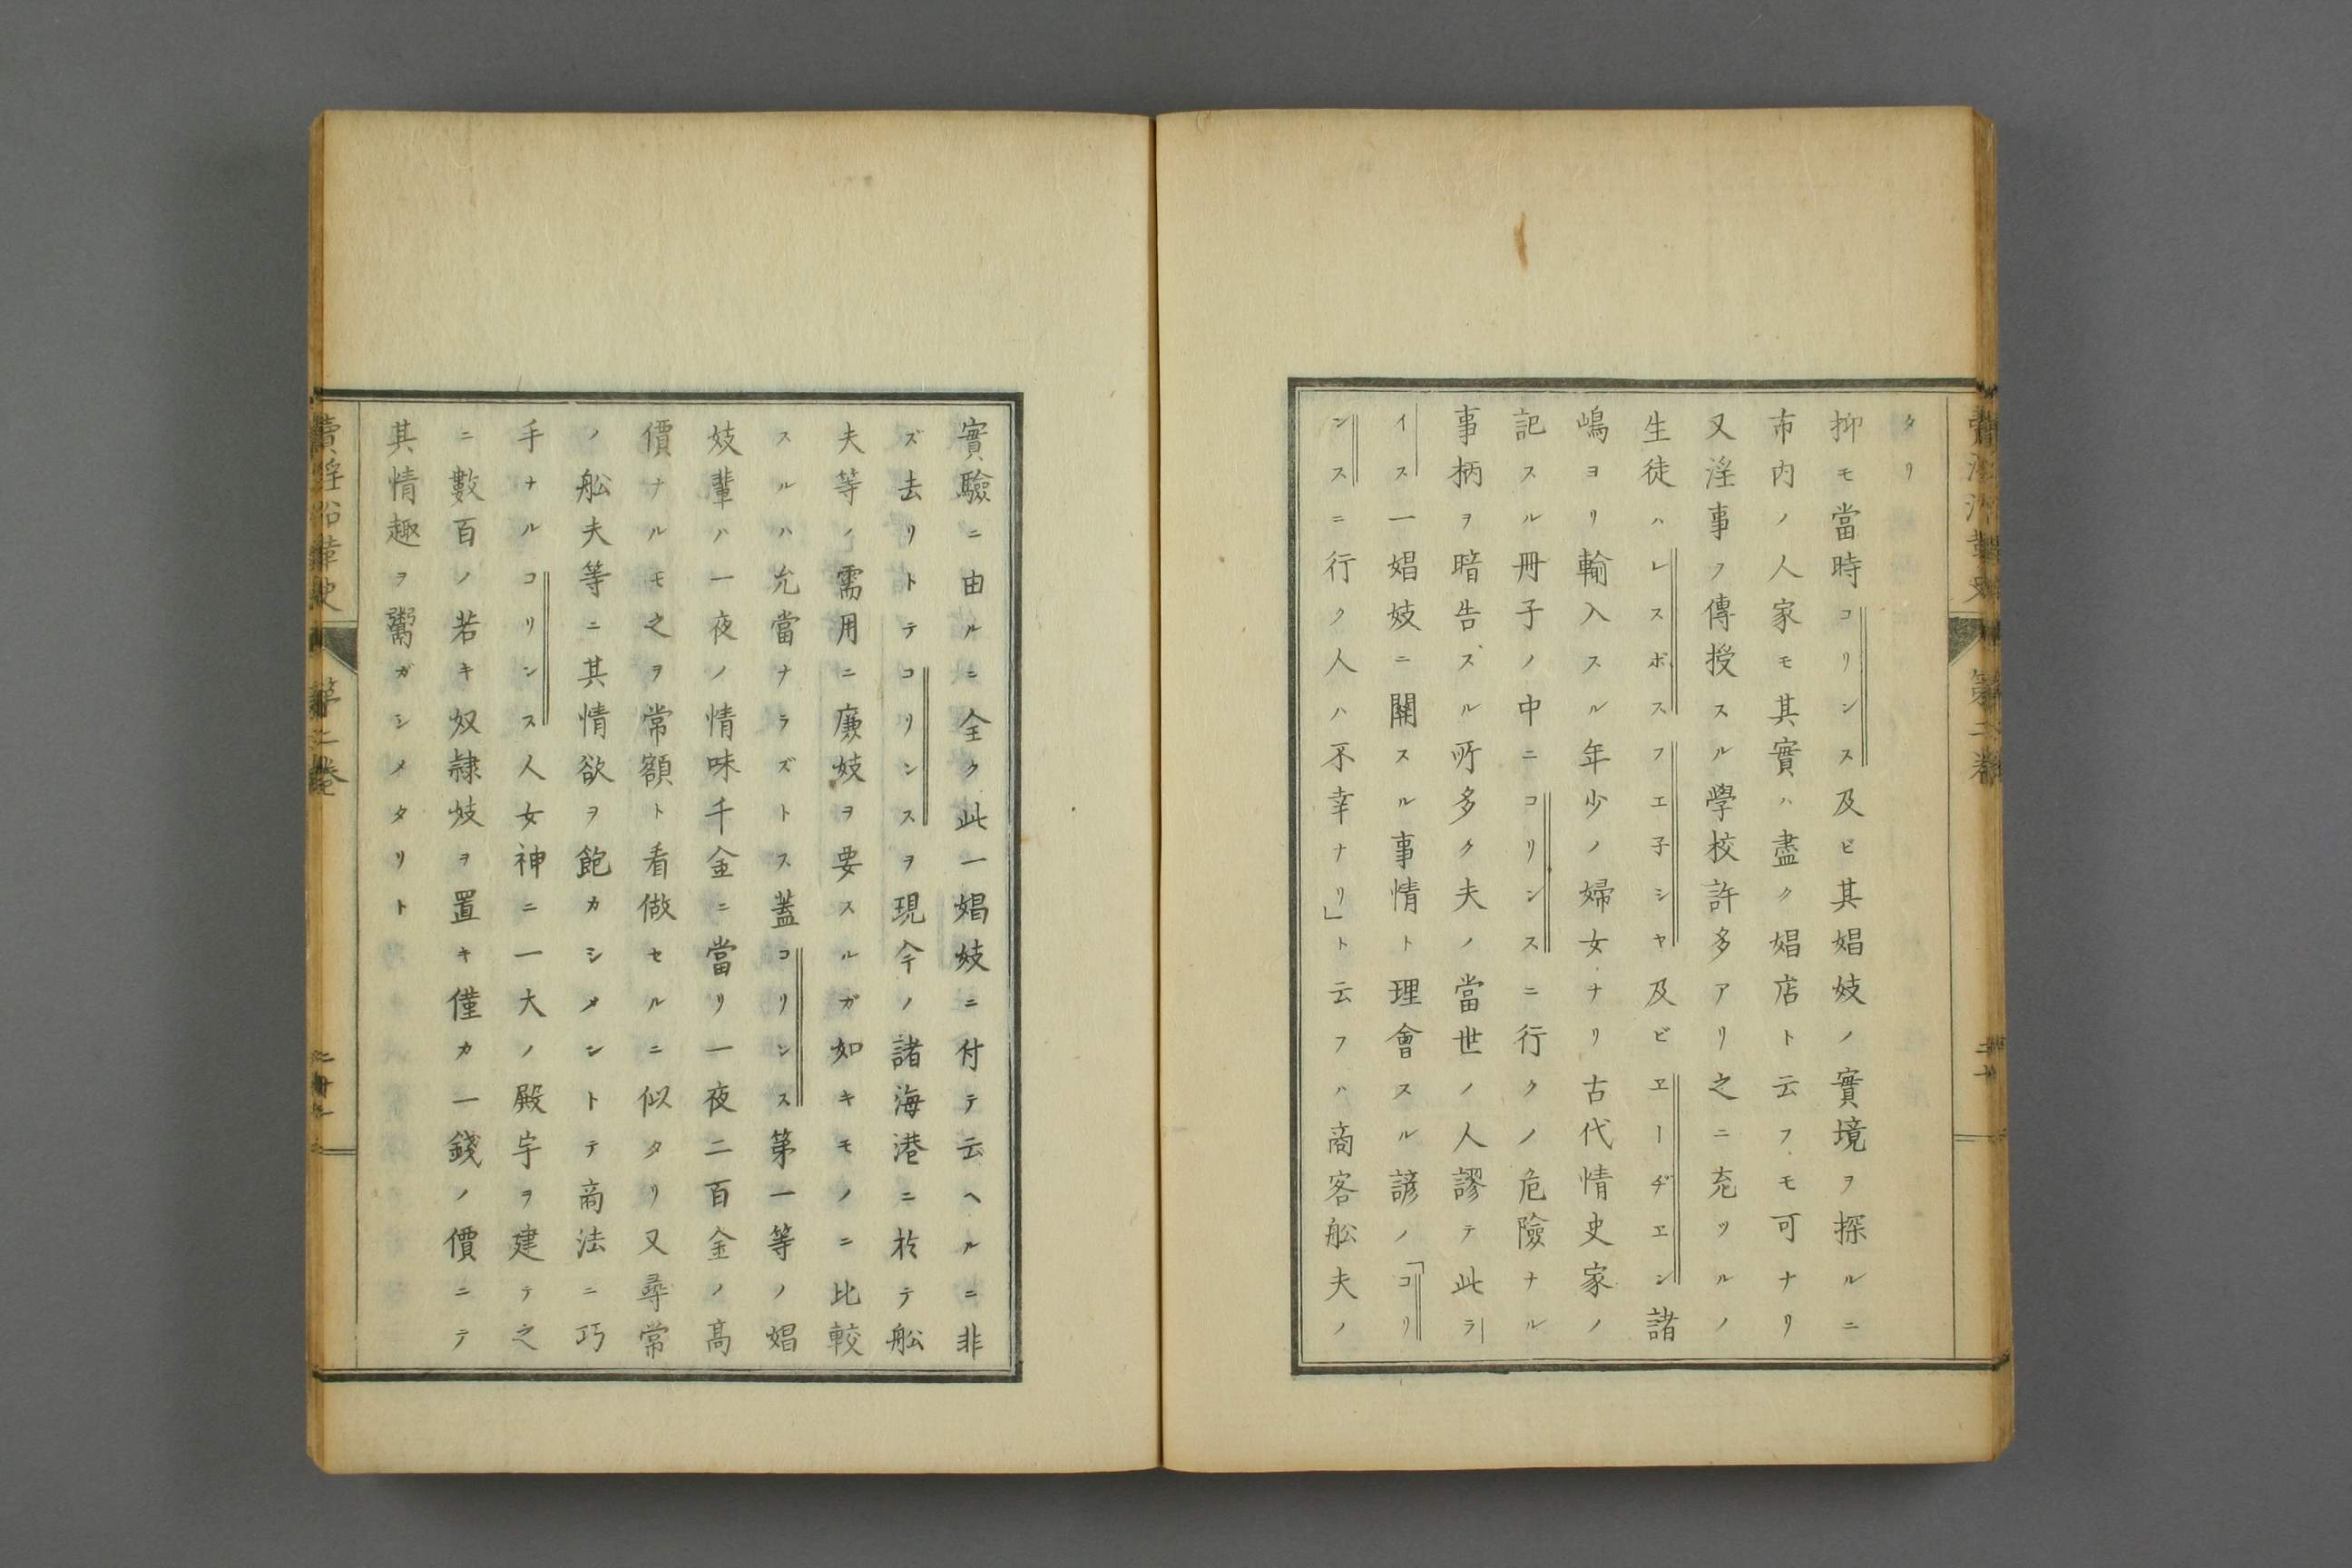 タリ
抑モ當時コリンス及ビ其娼妓ノ實境ヲ探ルニ
市内ノ人家モ其實ハ盡ク娼店ト云フモ可ナリ
又淫事ヲ傳授スル學校許多アリ之ニ充ツルノ
生徒ハレスボスフエ子シヤ及ビヱーヂヱン諸
嶋ヨリ輸入スル年少ノ婦女ナリ古代情史家ノ
記スル冊子ノ中ニコリンスニ行クノ危險ナル
事柄ヲ暗告ズル所多ク夫ノ當世ノ人謬テ此ラ
イス一娼妓ニ關スル事情ト理會スル諺ノ「コリ
ンスニ行ク人ハ不幸ナリ」ト云フハ商客舩夫ノ
實驗ニ由ルニ全ク此一娼妓ニ付テ云ヘルニ非
ズ去リトテコリンスヲ現今ノ諸海港ニ於テ舩
夫等ノ需用ニ廉妓ヲ要スルガ如キモノニ比較
スルハ允當ナラズトス蓋コリンス第一等ノ娼
妓輩ハ一夜ノ情味千金ニ當リ一夜二百金ノ高
價ナルモ之ヲ常額ト看做セルニ似タリ又尋常
ノ舩夫等ニ其情欲ヲ飽カシメントテ商法ニ巧
手ナルコリンス人女神ニ一大ノ殿宇ヲ建テ之
ニ數百ノ若キ奴隷妓ヲ置キ僅カ一錢ノ價ニテ
其情趣ヲ鬻ガシメタリト
第二卷